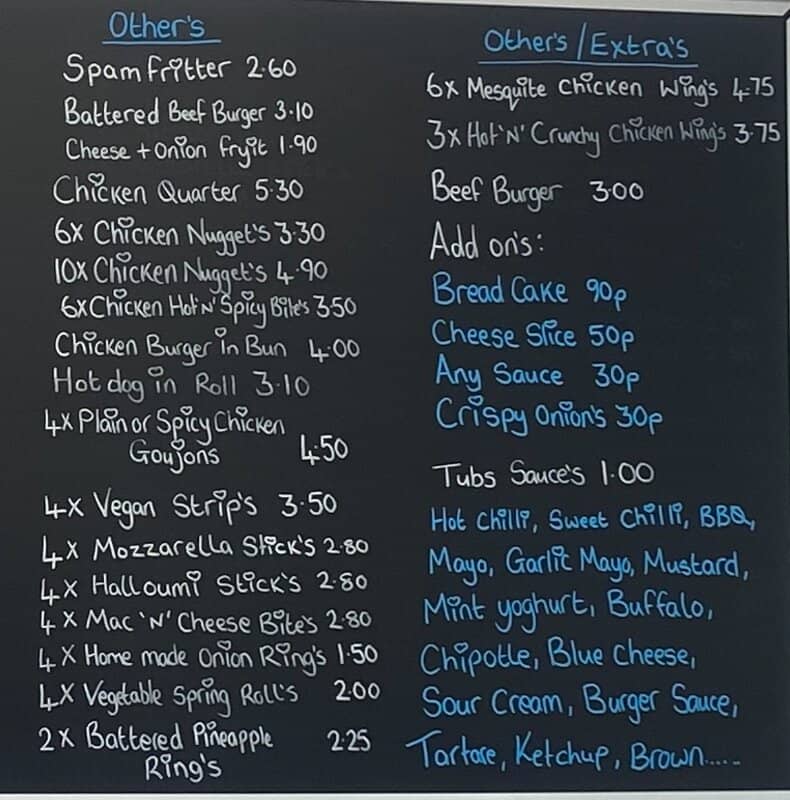 Other's
Spam Fritter 2.60
Battered Beef Burger 3.10
Cheese + Onion Fryit 1.90
Chicken Quarter 5.30
6x Chicken Nugget's 3.30
10x Chicken Nugget's 4.90
6x Chicken Hot 'N' Spicy Bite's 3.50
Chicken Burger in Bun 4.00
Hot dog in Roll 3.10
4x Plain or Spicy Chicken
Goujons 4.50
4x Vegan Strip's 3.50
4x Mozzarella Stick's 2.80
4x Halloumi Stick's 2.80
4x Mac 'N' Cheese Bite's 2.80
4x Home made Onion Ring's 1.50
4x Vegetable Spring Roll's 2.00
2x Battered Pineapple 2.25
Ring's
Other's/Extra's
6x Mesquite Chicken Wing's 4.75
3x Hot 'N' Crunchy Chicken Wing's 3.75
Beef Burger 3.00
Add on's:
Bread Cake 90p
Cheese Slice 50p
Any Sauce 30p
Crispy Onion's 30p
Tubs Sauce's 1.00
Hot Chilli, Sweet Chilli, BBQ,
Mayo, Garlic Mayo, Mustard,
Mint yoghurt, Buffalo,
Chipotle, Blue Cheese,
Sour Cream, Burger Sauce,
Tartare, Ketchup, Brown.....